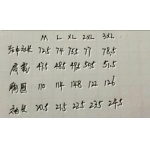 M L XL 2XL 3XL
后中衣长 72.5 74 75.5 77 78.5
肩宽 47.5 48.5 49.5 50.5 51.5
胸围 110 114 118 122 126
袖长 20.5 21.5 22.5 23.5 24.5